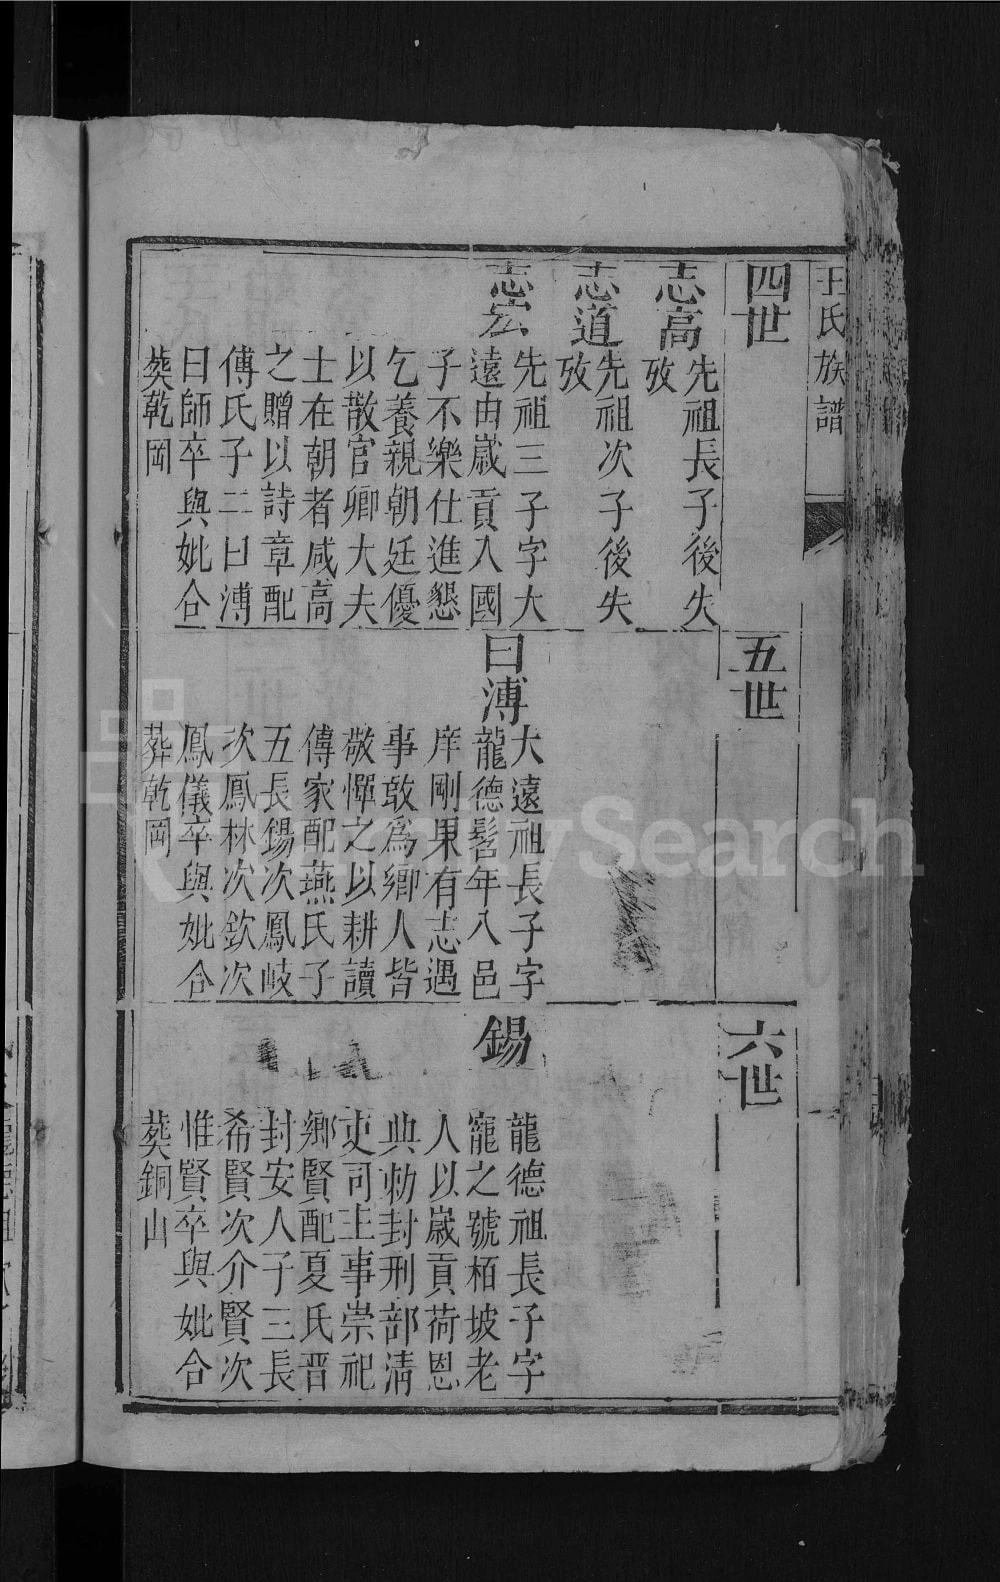 王氏族譜
四世
志高
先祖長子後失
攷
志道
先祖次子後失
攷
志宏
先祖三子字大
遠由嵗貢入國
子不樂仕進懇
乞養親朝廷優
以散官卿大夫
士在朝者咸高
之贈以詩章配
傅氏子二曰溥
曰師卒與妣合
葬乾岡
五世
曰溥
大遠祖長子字
龍德髫年入邑
庠剛果有志遇
事敢為鄉人皆
敬憚之以耕讀
傳家配燕氏子
五長錫次鳳岐
次鳳林次欽次
鳳儀卒與妣合
葬乾岡
六世
錫
龍德祖長子字
寵之號栢坡老
人以嵗貢荷恩
典勅封刑部清
吏司主事崇祀
鄉賢配夏氏晋
封安人子三長
希賢次介賢次
惟賢卒與妣合
葬銅山
FamilySearch